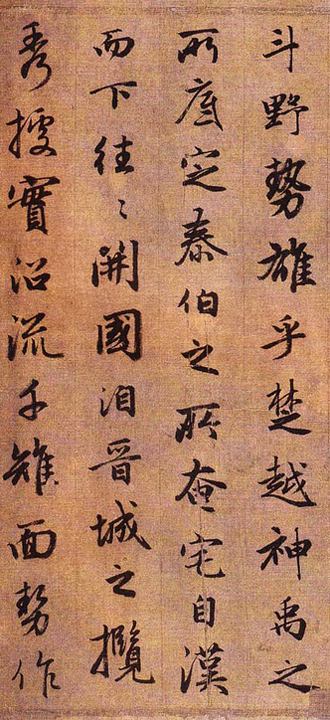 斗野勢雄乎楚越神禹之
所底定泰伯之所奄宅自漢
而下往〻開國洎晉城之攬
秀據實沿流千雉面勢作